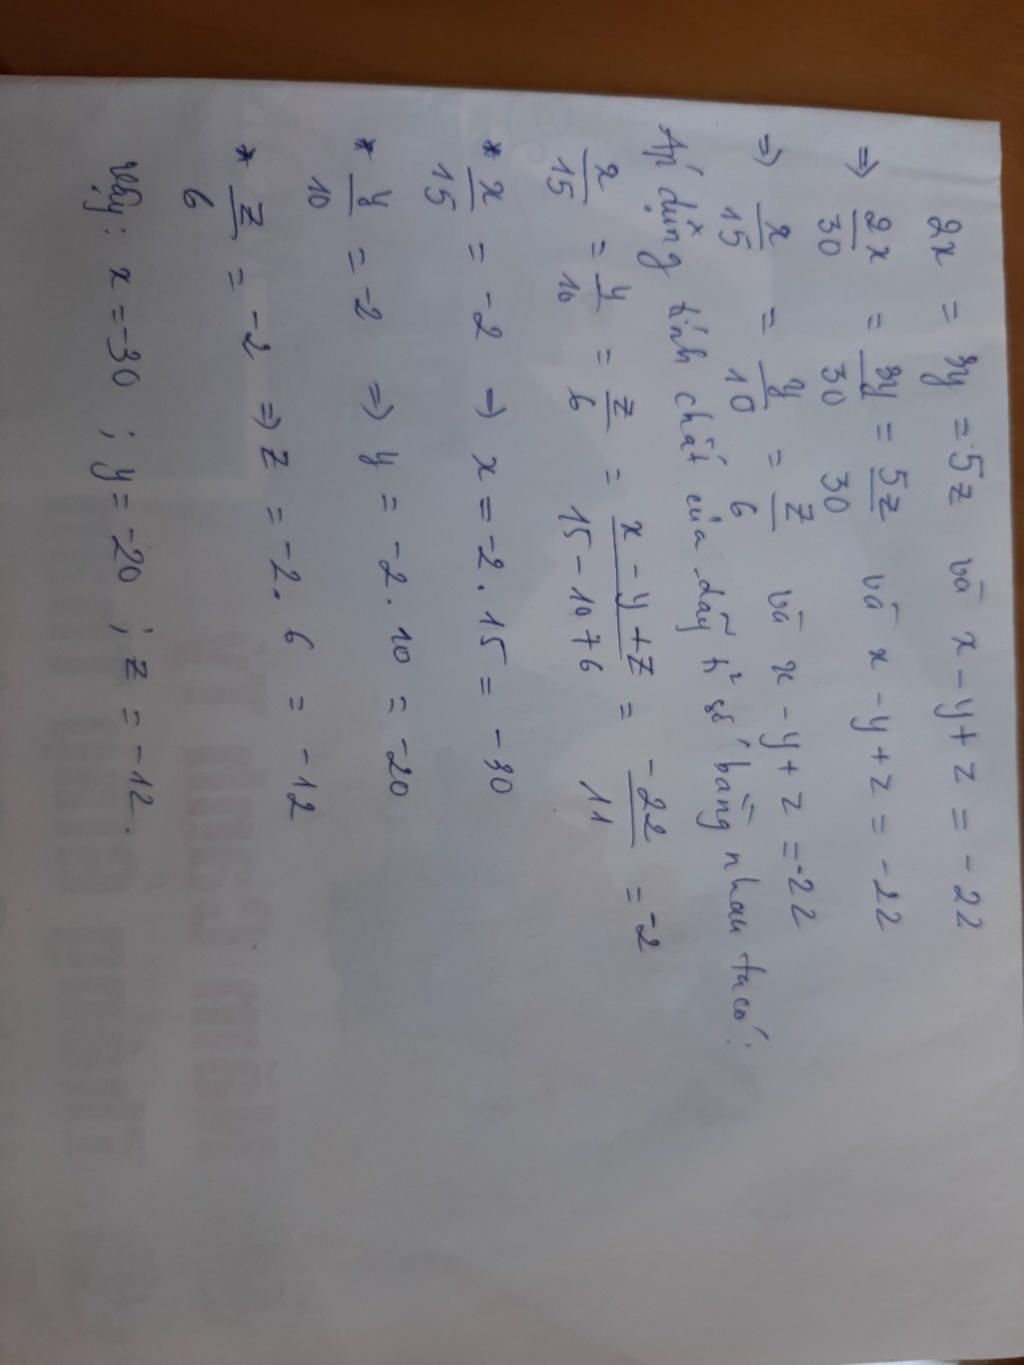 2x = 3y = 5z và x - y + z = -22
=> 2x/30 = 3y/30 = 5z/30 và x - y + z = -22
=> x/15 = y/10 = z/6 và x - y + z = -22
Áp dụng tính chất của dãy tỉ số bằng nhau ta có:
x/15 = y/10 = z/6 = x - y + z/15 - 10 + 6 = -22/11 = -2
* x/15 = -2 => x = -2 . 15 = -30
* y/10 = -2 => y = -2 . 10 = -20
* z/6 = -2 => z = -2 . 6 = -12
Vậy: x = -30 ; y = -20 ; z = -12.